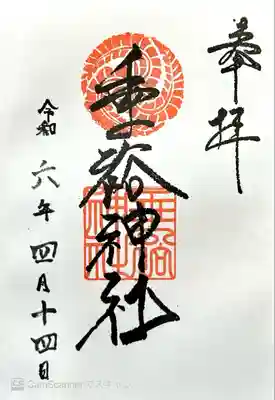 奉拝
垂裕神社
垂裕
神社
令和六年四月十四日
CamScanner でスキャン